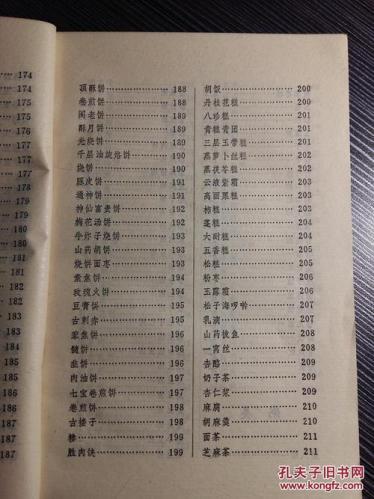 174
174
175
175
176
178
179
179
180
181
181
182
182
183
183
184
184
185
185
186
187
187
顶酥饼 188
卷煎饼 188
阁老饼 189
酥月饼 189
光烧饼 189
千层油旋烙饼 190
烧饼 190
豚皮饼 191
通神饼 191
神仙富贵饼 192
梅花汤饼 192
牛炸子烧饼 193
山药胡饼 193
烧饼面枣 193
素焦饼 194
玫瑰火饼 194
豆膏饼 195
古刺赤 195
家焦饼 196
髓饼 196
韭饼 196
肉油饼 197
七宝卷煎饼 197
卷煎饼 198
古搂子 198
糁 199
胜肉侠 199
胡饭 200
丹桂花糕 200
八珍糕 201
青糕青团 201
三层玉带糕 201
蒸萝卜丝糕 202
蒸茯苓糕 202
云液紫霜 203
高丽栗糕 203
柿糕 203
蓬糕 204
大耐糕 204
五香糕 204
松糕 205
粉枣 206
玉露霜 206
松子海啰𠿪 207
乳滴 207
山药拨鱼 208
一窝丝 208
杏酪 209
奶子茶 209
杏仁浆 209
麻腐 210
胡麻羹 210
面茶 211
芝麻茶 211
孔夫子旧书网